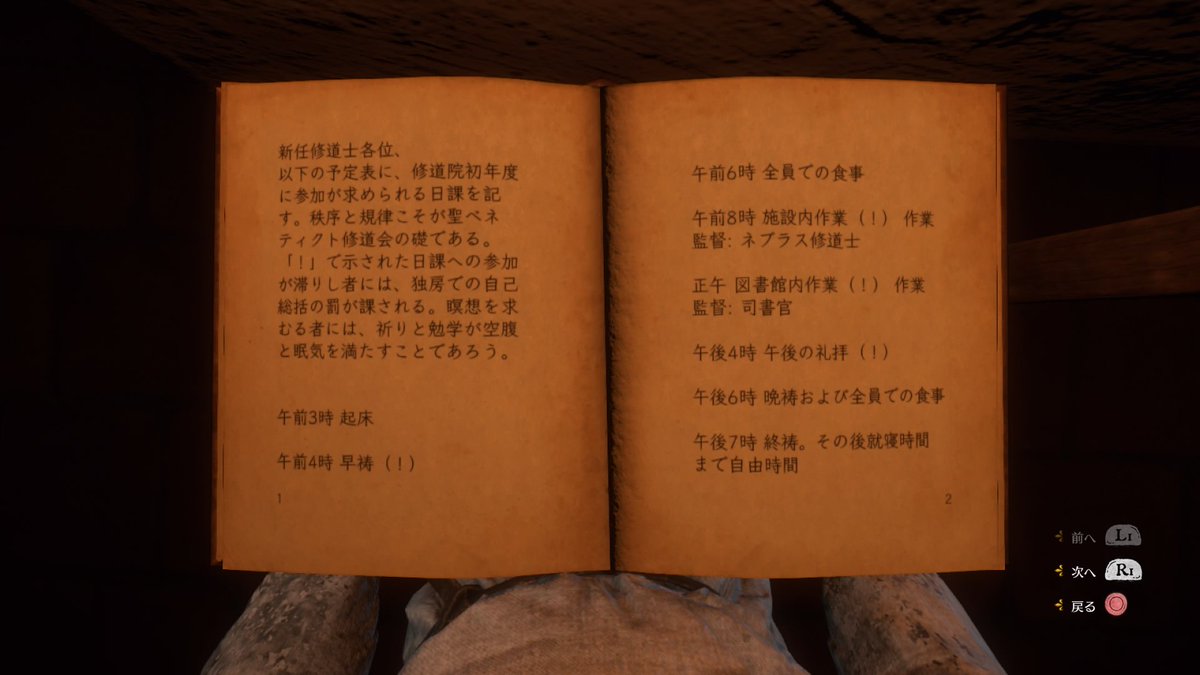 新任修道士各位、
以下の予定表に、修道院初年度
に参加が求められる日課を記
す。秩序と規律こそが聖ベネ
ティクト修道会の礎である。
「！」で示された日課への参加
が滞りし者には、独房での自己
総括の罰が課される。瞑想を求
むる者には、祈りと勉学が空腹
と眠気を満たすことであろう。
午前3時 起床
午前4時 早祷（！）
1
午前6時 全員での食事
午前8時 施設内作業（！） 作業
監督: ネブラス修道士
正午 図書館内作業（！） 作業
監督: 司書官
午後4時 午後の礼拝（！）
午後6時 晩祷および全員での食事
午後7時 終祷。その後就寝時間
まで自由時間
2
前へ L1
次へ R1
戻る